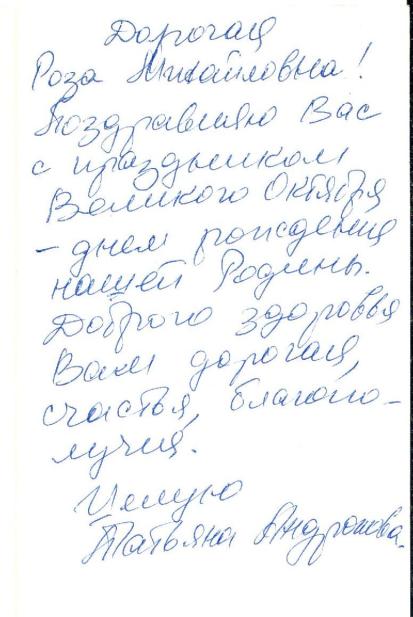 Дорогая
Роза Михайловна!
Поздравляю Вас
с праздником
Великого Октября
– днем рождения
нашей Родины.
Доброго здоровья
Вам дорогая,
счастья, благопо-
лучия.
Целую
Татьяна Андронова.